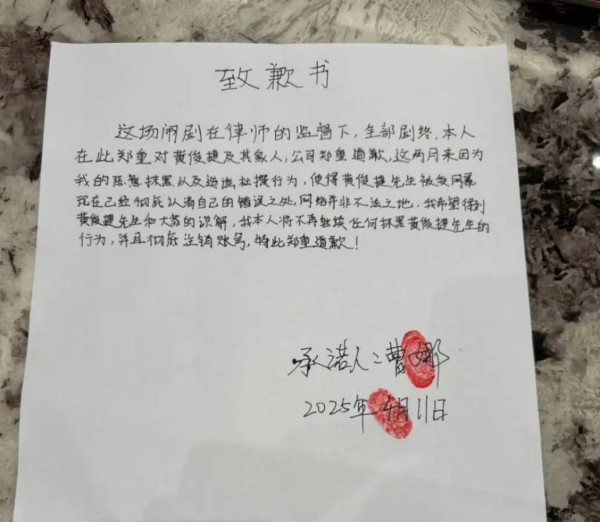 致歉书
这场闹剧在律师的监督下,全部剧终,本人
在此郑重对黄俊捷及其家人,公司郑重道歉,这两月来因为
我的恶意抹黑以及造谣杜撰行为,使得黄俊捷先生被受网暴
现在已经彻底认清自己的错误之处,网络并非不法之地.我希望得到
黄俊捷先生和大的谅解,我本人将不再继续任何抹黑黄俊捷先生的
行为,并且彻底注销账号,特此郑重道歉!
承诺人:曹娜
2025年4月11日